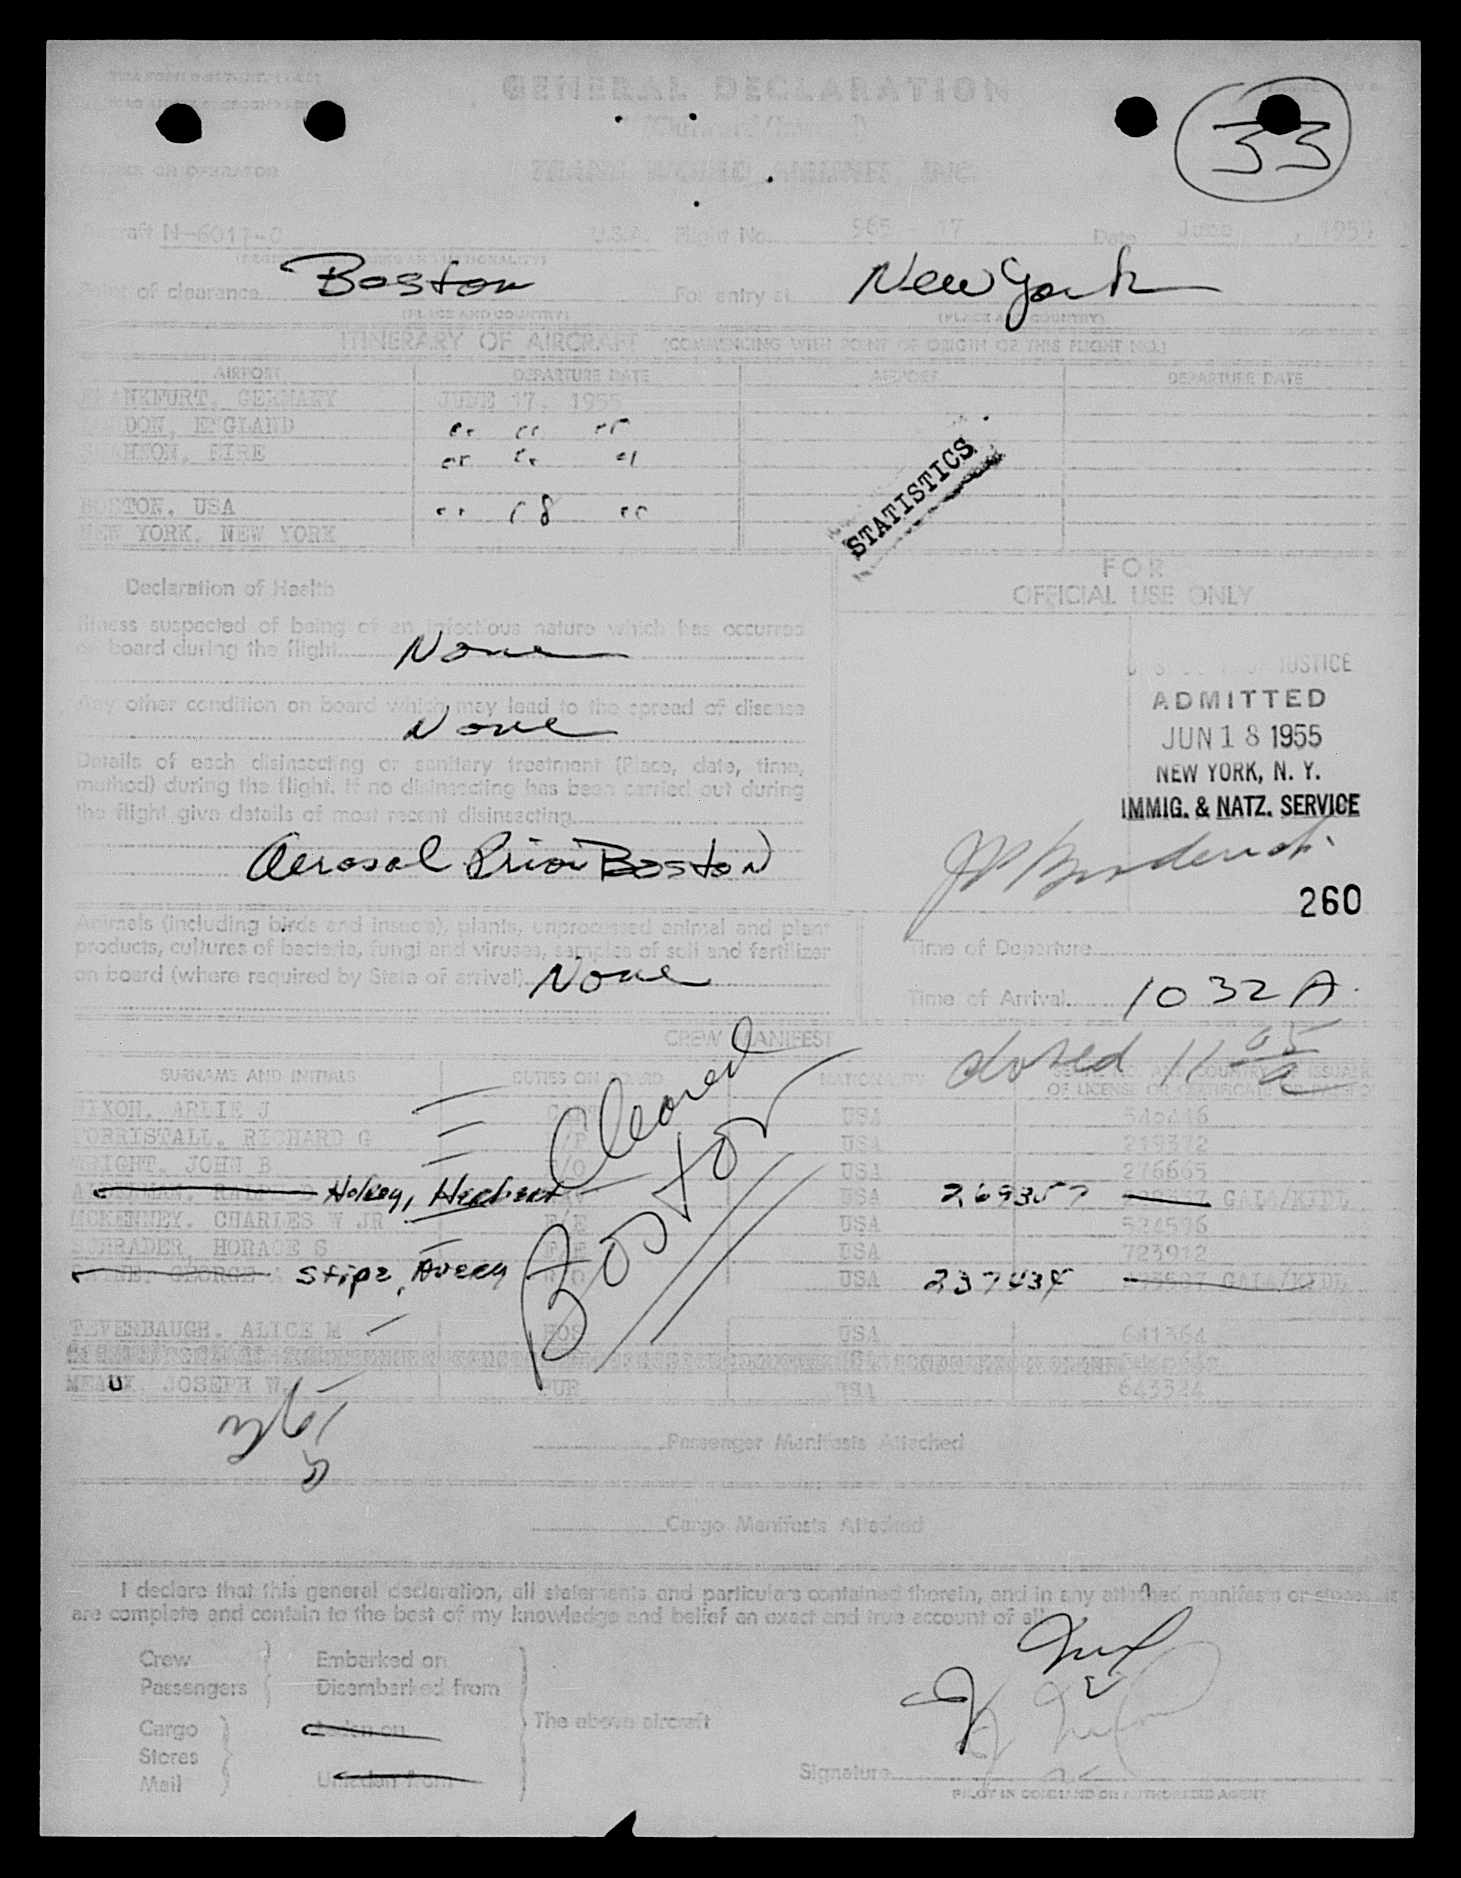 GENERAL DECLARATION
(Outward/Inward)
33
OWNER OR OPERATOR TRANS WORLD AIRLINES, INC.
Aircraft N-6017-C U.S.A. Flight No. 965 17 Date June , 1955
Point of clearance Boston For entry at New York
(PLACE AND COUNTRY) (PLACE AND COUNTRY)
ITINERARY OF AIRCRAFT (COMMENCING WITH POINT OF ORIGIN OF THIS FLIGHT NO.)
AIRPORT DEPARTURE DATE AIRPORT DEPARTURE DATE
FRANKFURT, GERMANY JUNE 17, 1955
LONDON, ENGLAND " " "
SHANNON, EIRE " " "
BOSTON, USA " 18 "
NEW YORK, NEW YORK
STATISTICS
FOR
OFFICIAL USE ONLY
Declaration of Health
Illness suspected of being of an infectious nature which has occurred
on board during the flight None
Any other condition on board which may lead to the spread of disease
None
Details of each disinsecting or sanitary treatment (Place, date, time,
method) during the flight. If no disinsecting has been carried out during
the flight give details of most recent disinsecting
Aerosol Prior Boston
JUSTICE
ADMITTED
JUN 18 1955
NEW YORK, N. Y.
IMMIG. & NATZ. SERVICE
260
Animals (including birds and insects), plants, unprocessed animal and plant
products, cultures of bacteria, fungi and viruses, samples of soil and fertilizer
on board (where required by State of arrival) None
Time of Departure
Time of Arrival 1032 A.
closed 11 05
CREW MANIFEST
Cleared Boston
SURNAME AND INITIALS DUTIES ON BOARD NATIONALITY
OF LICENSE OR CERTIFICATE OR PASSPORT
NIXON, ARLIE J USA
FORRISTALL, RICHARD G USA 219372
WRIGHT, JOHN B F/O USA 276665
Holvey, Herbert USA 269357 GALA/KFDL
MCKENNEY, CHARLES W JR F/E USA 524576
SCHRADER, HORACE S F/E USA 723912
Stipe, Avery USA 237434 GALA/KFDL
TEVEBAUGH, ALICE M HOS USA 641364
MEAUX, JOSEPH W. PUR USA 643524
Passenger Manifests Attached
Cargo Manifests Attached
I declare that this general declaration, all statements and particulars contained therein, and in any attached manifests or stores lists
are complete and contain to the best of my knowledge and belief an exact and true account of all
Crew Embarked on
Passengers Disembarked from
The above aircraft
Cargo Laden on
Stores
Mail Unladen from
Signature
PILOT IN COMMAND OR AUTHORIZED AGENT